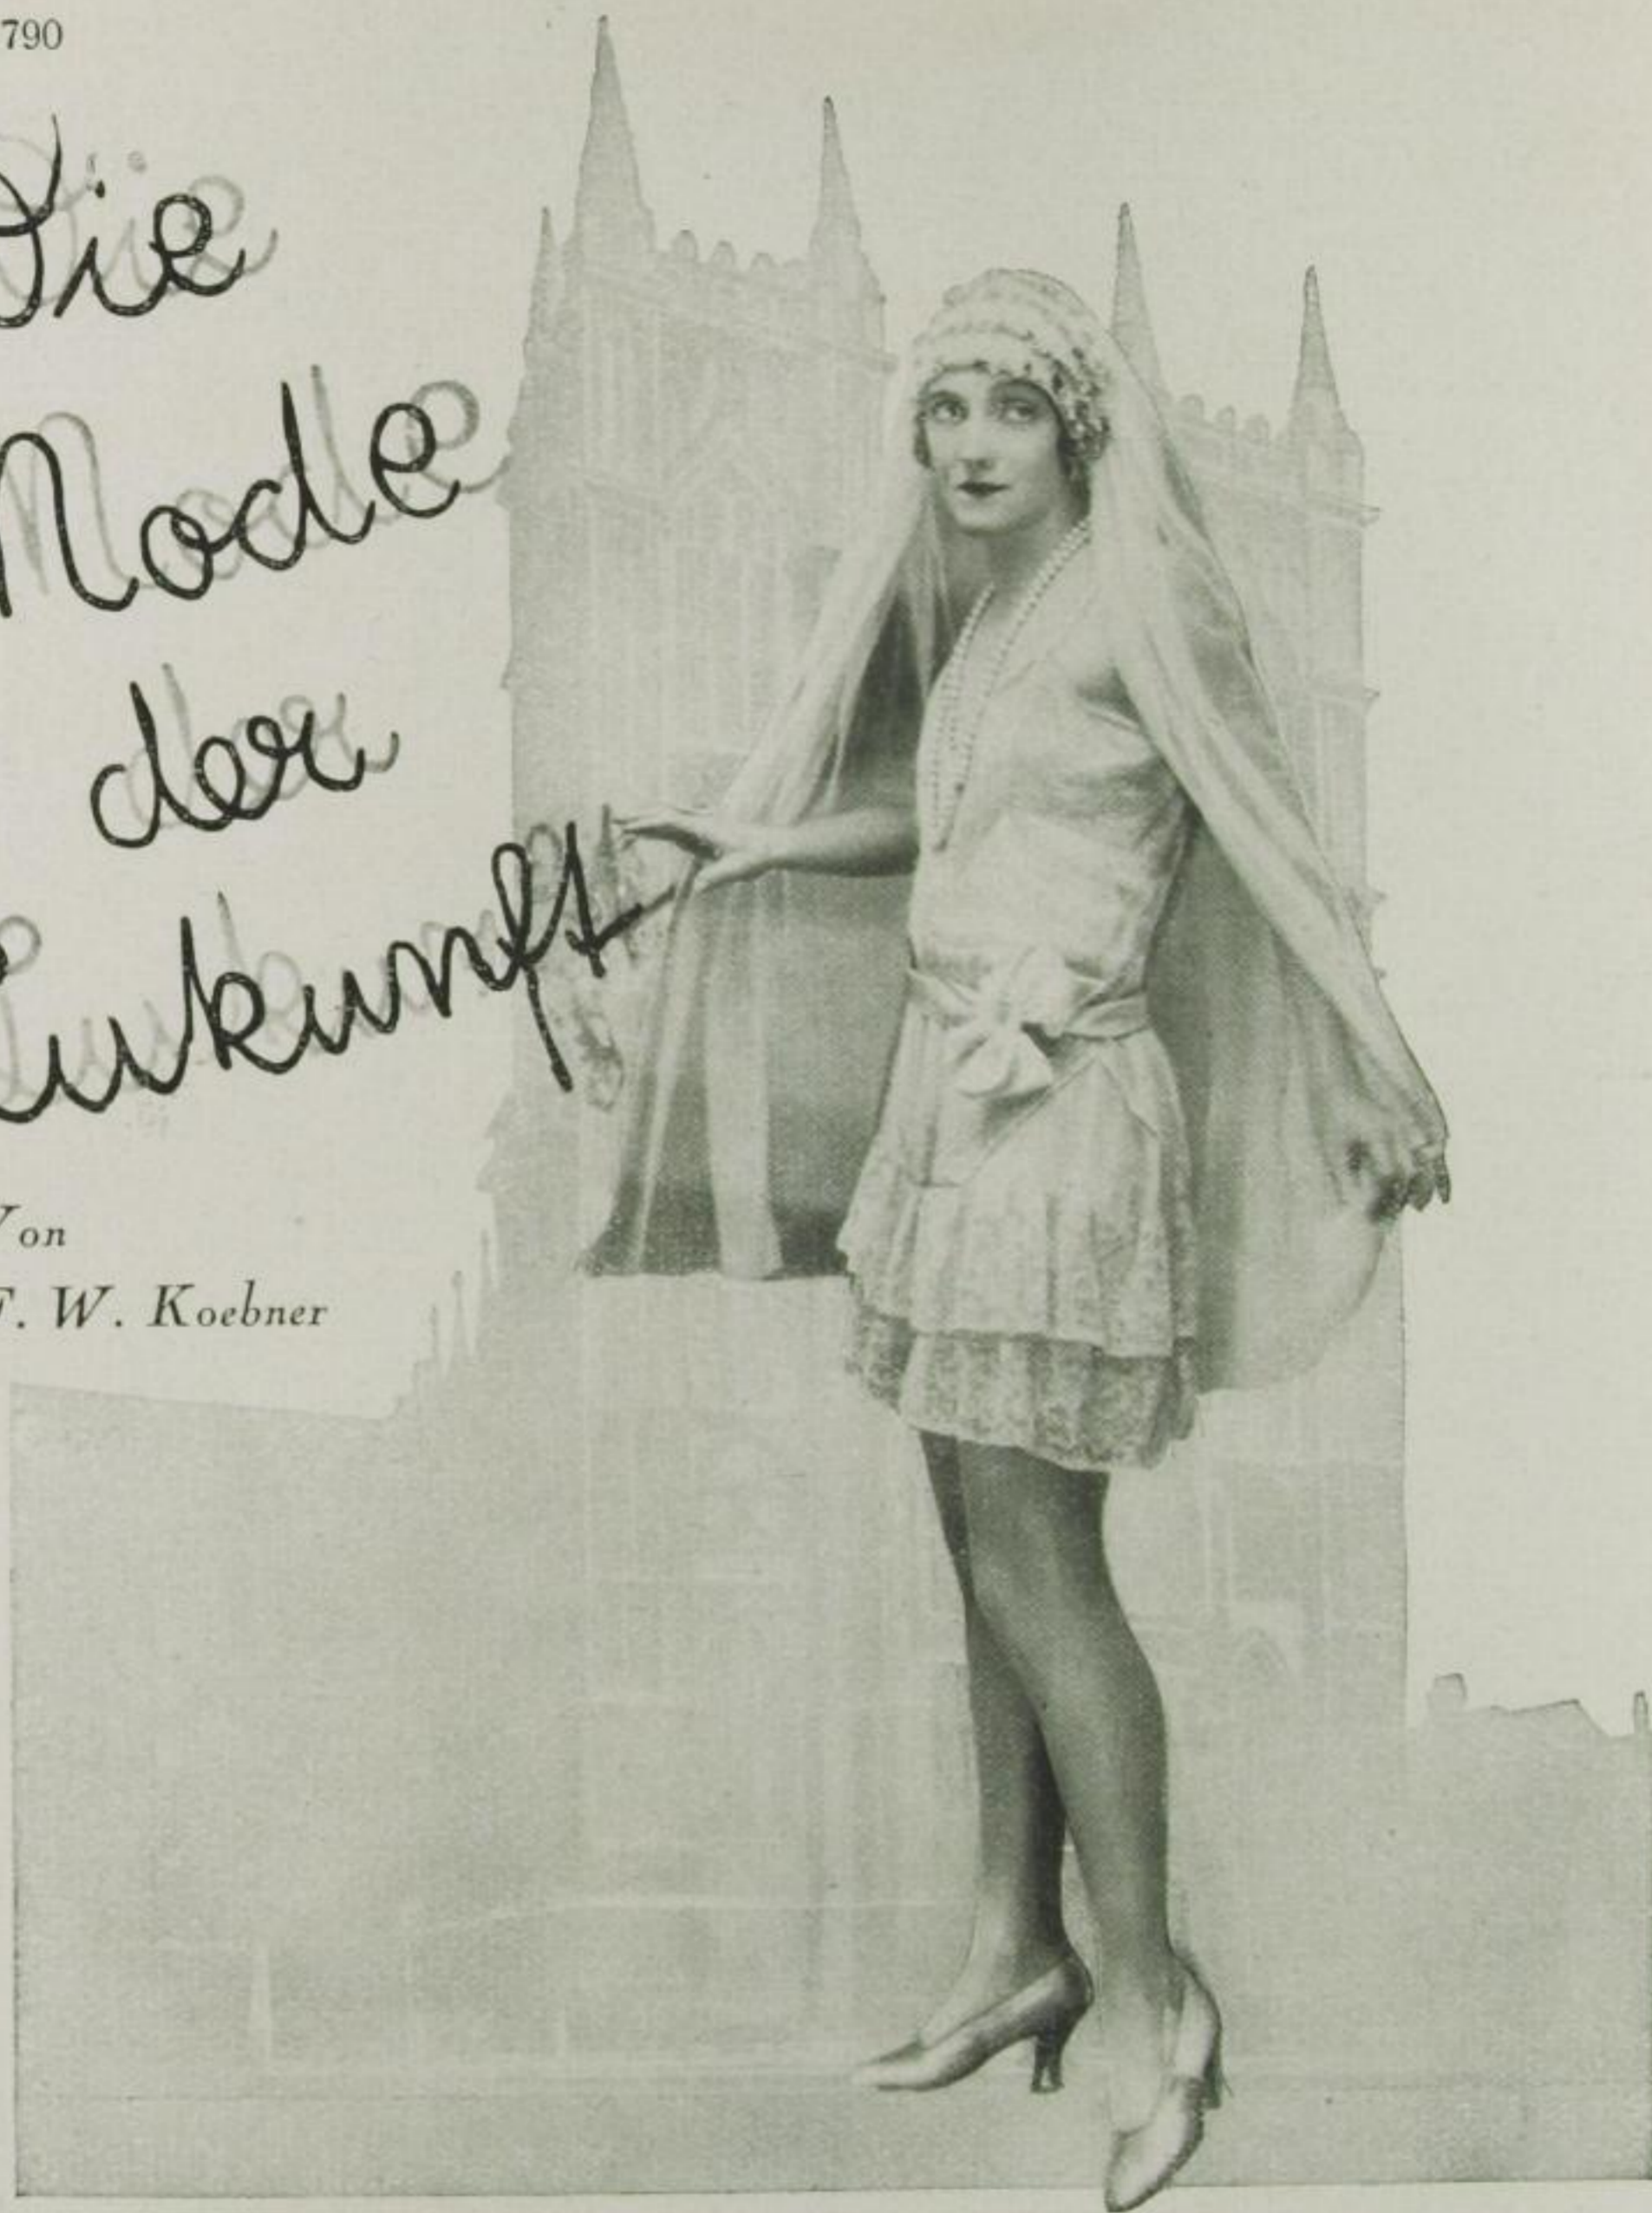 790
Die
Mode
der
Zukunft
Von
F. W. Koebner